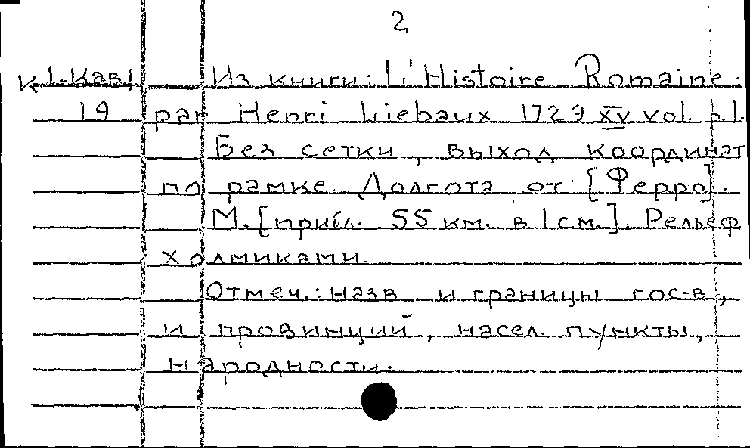 2
К 1-Кав1 Из книги: L'Histoire Romaine
19 par Henri Liebaux 1729 XV vol. p.1.
Без сетки, выход координат
по рамке. Долгота от [Ферро].
М. [прибл. 55 км. в 1 см.]. Рельеф
холмиками.
Отмеч.: назв. и границы гос-в,
и провинций, насел. пункты,
народности.